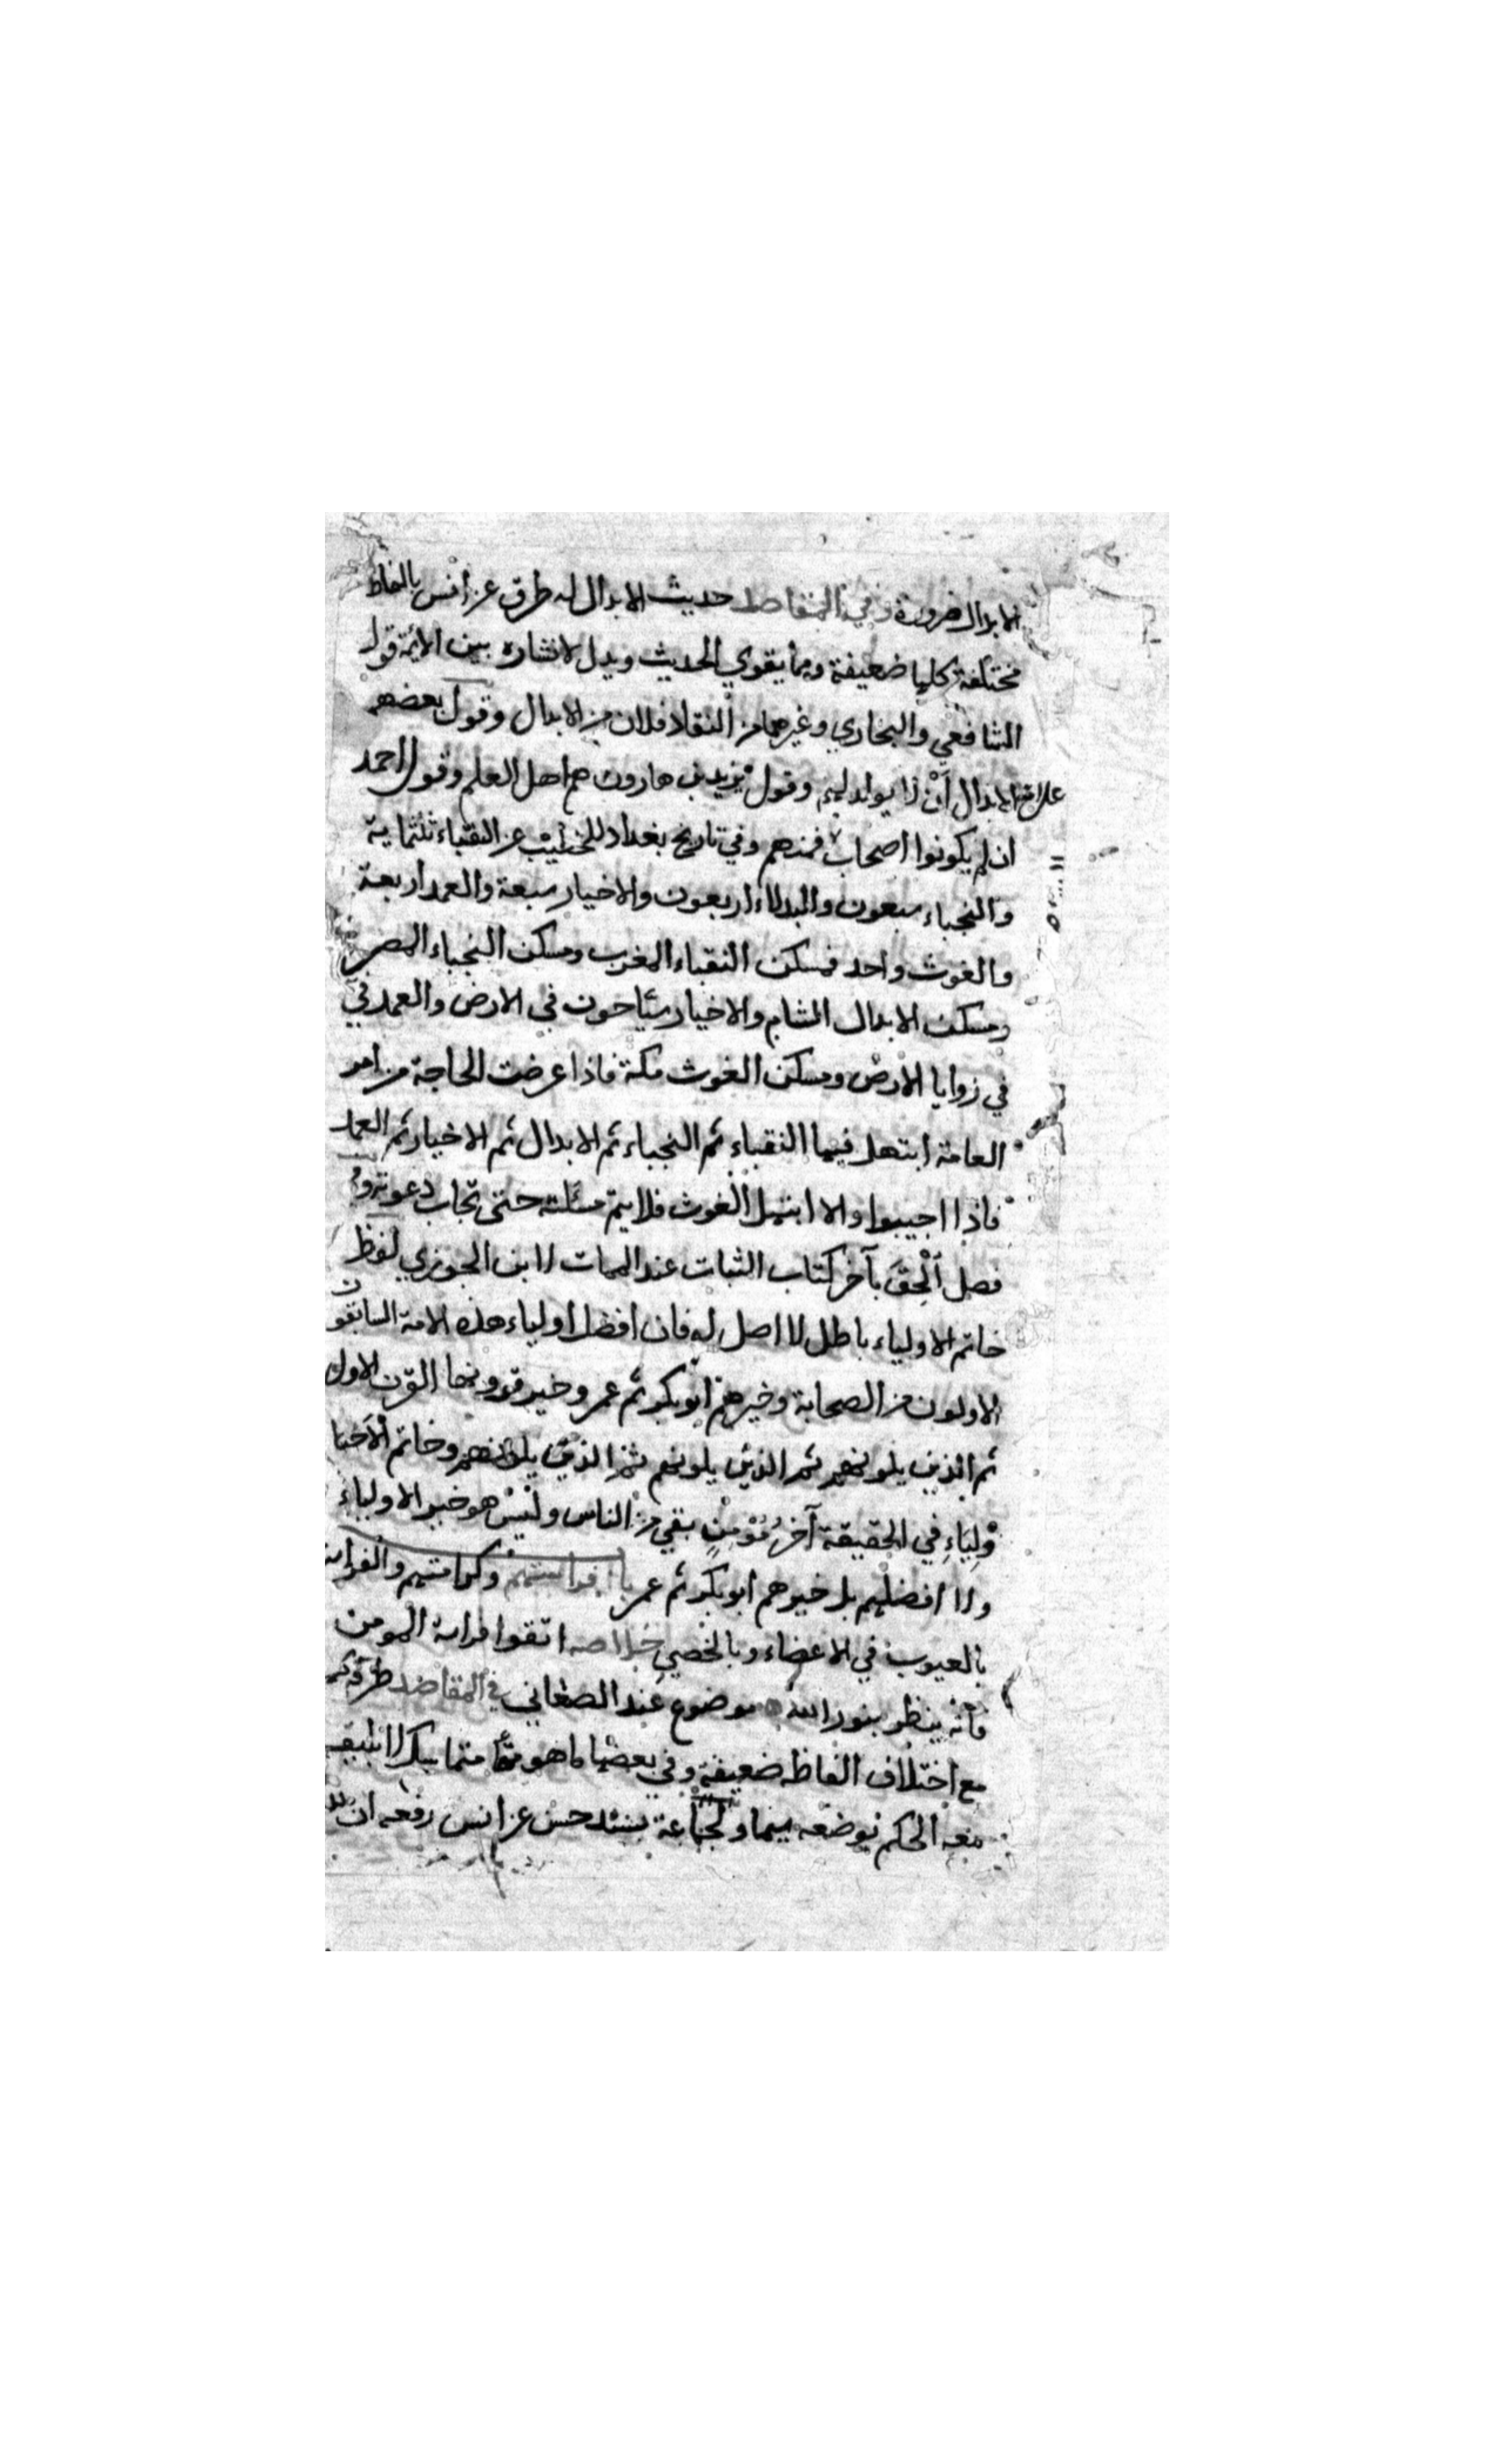 الابدال ضرورة وفي المقاصد حديث الابدال له طرق عن انس بالفاظ
مختلفة كلها ضعيفة ومما يقوي الحديث ويدل لانتشاره بين الائمة قول
الشافعي والبخاري وغيرهما من النقاد فلان من الابدال وقول بعضهم
علامة الابدال أن لا يولد لهم وقول يزيد بن هارون هم اهل العلم وقول احمد
ان لم يكونوا اصحاب فمنهم وفي تاريخ بغداد للخطيب عن النقباء ثلثماية
والنجباء سبعون والبدلاء اربعون والاخيار سبعة والعمد اربعة
والغوث واحد فمسكن النقباء المغرب ومسكن النجباء المصر
ومسكن الابدال الشام والاخيار سياحون في الارض والعمد في
في زوايا الارض ومسكن الغوث مكة فاذا عرضت الحاجة من امر
العامة ابتهل فيها النقباء ثم النجباء ثم الابدال ثم الاخيار ثم العمد
فاذا اجيبوا والا ابتهل الغوث فلا يتم مسئلته حتى تجاب دعوته و
فصل ألحق بآخر كتاب الثبات عند الممات لابن الجوزي لفظ
خاتم الاولياء باطل لا اصل له فان افضل اولياء هذه الامة السابقون
الاولون من الصحابة وخيرهم ابوبكر ثم عمر وخير قرونها القرن الاول
ثم الذين يلونهم ثم الذين يلونهم ثم الذين يلونهم وخاتم الاحبا
ولياء في الحقيقة آخر مؤمن بقي من الناس وليس هو خير الاولياء
ولا افضلهم بل خيرهم ابوبكر ثم عمر فراستهم وكرامتهم والفراسة
بالعيوب في الاعضاء وبالخصي خلاصه اتقوا فراسة المومن
فانه ينظر بنور الله موضوع عند الصغاني في المقاصد طرقه كـ
مع اختلاف الفاظه ضعيفة وفي بعضها ما هو متماسك لا يليق
معه الحكم بوضعه سيما ولجماعة بسند حسن عن انس رفعه ان لله